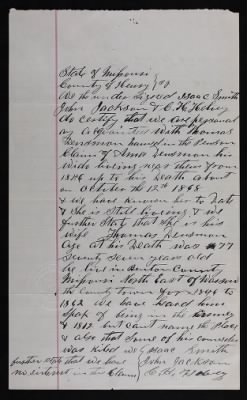 State of Missouri
County of Henry
We the undersigned Isaac Smith
John Jackson & C. H.
do certify that we are personal
ly acquainted with Thomas
named in the
Claim of his
Wife living near them from
1846 up to his Death about
on October the 12th 1868
& we have known her to Date
& She is Still Living & we
further State that She is his
Wife Thomas
Age at his Death was 77
Seventy Seven years old
We live in Benton County
Missouri North East of Warsaw
the County Town from 1841 to
1862 We have heard him
Speak of being in the
& 1812 but cant name the place
& also that Some of his
was killed Isaac Smith
further State that we have John Jackson
no interest in this Claim C. H.